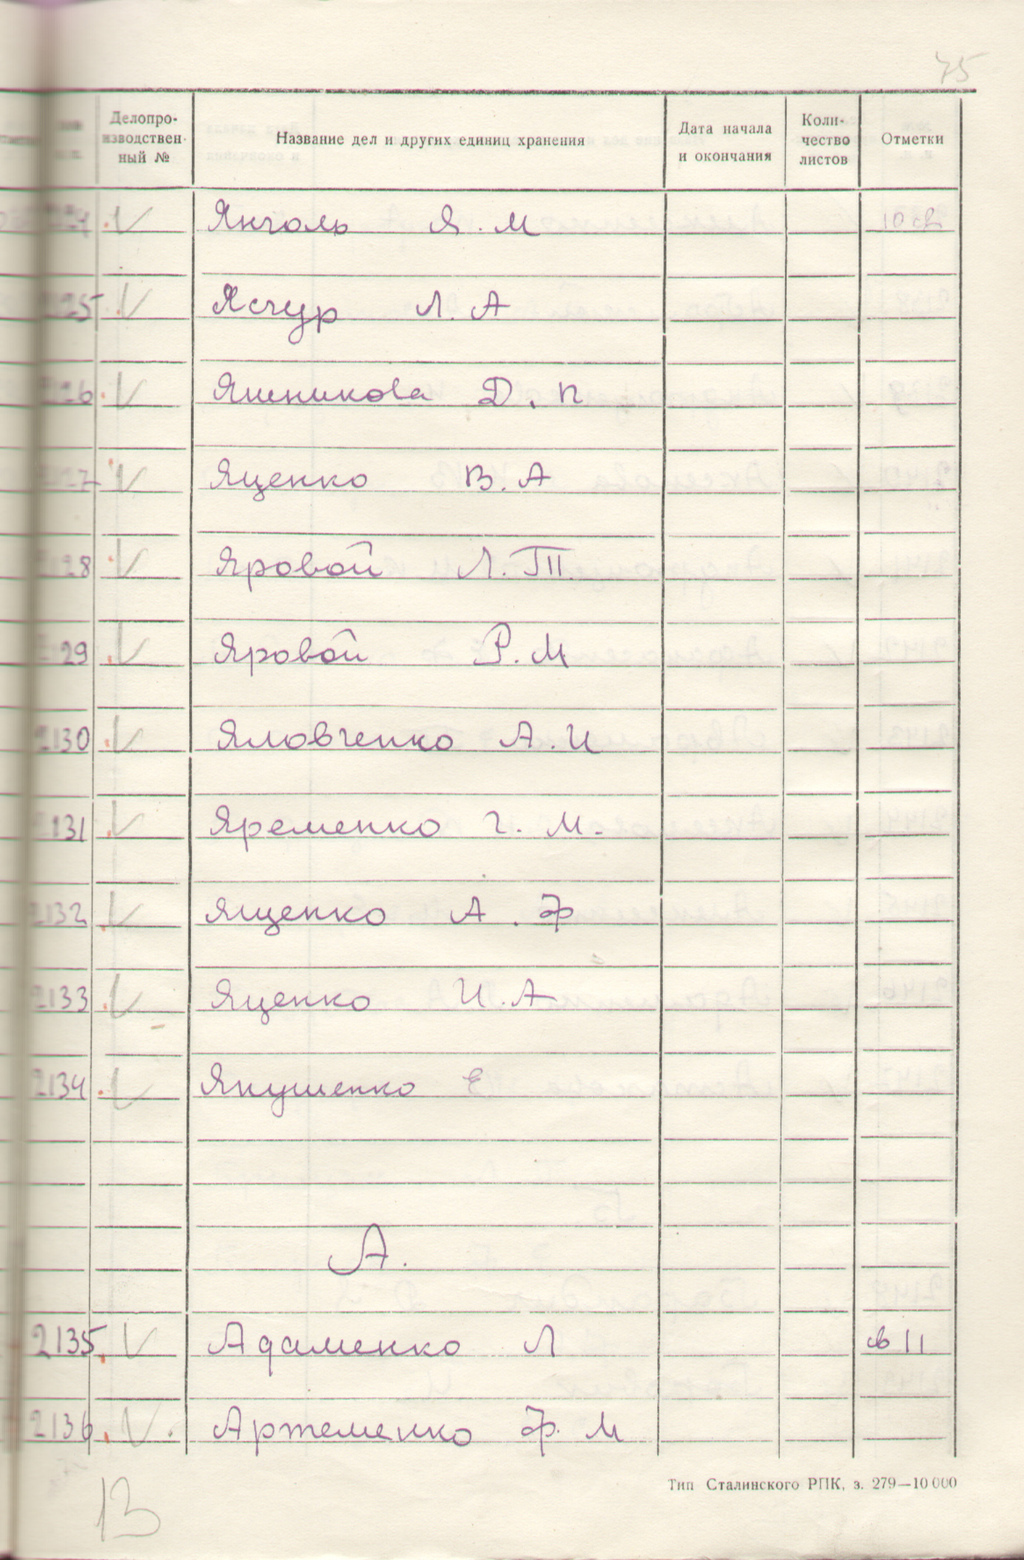 75
Делопро-
изводствен-
ный №
Название дел и других единиц хранения
Дата начала
и окончания
Коли-
чество
листов
Отметки
Янголь Я. М
25 Ясчур Л. А
26 Яшникова Д. П
27 Яценко В. А
28 Яровой Л. П.
29 Яровой Р. М
2130 Яловченко А. И
2131 Яременко Г. М.
2132 Ященко А. Ф
2133 Яценко И. А
2134 Янушенко Е
А.
2135 Адаменко Л св 11
2136 Артеменко Ф. М
Тип Сталинского РПК, з. 279—10 000
13